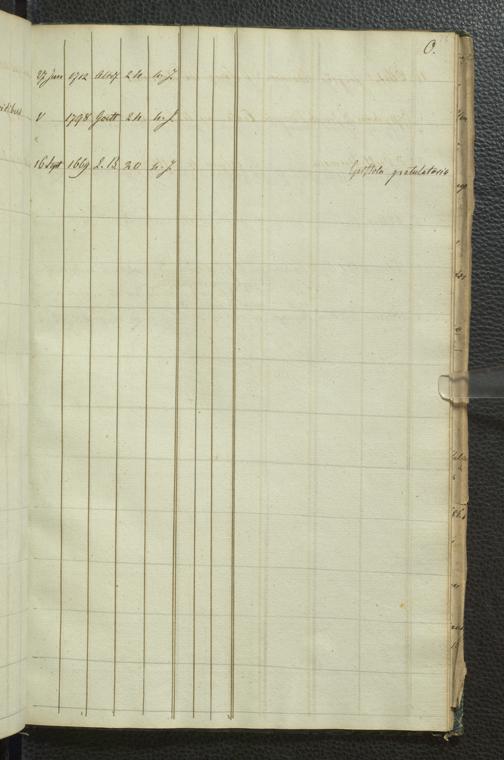 O.
27 Jun 1712 Altorf 24 w. J.
V 1798 Goett 24 w. J.
16 Sept 1669 L. B. 20 w. J. Epistola gratulatoria